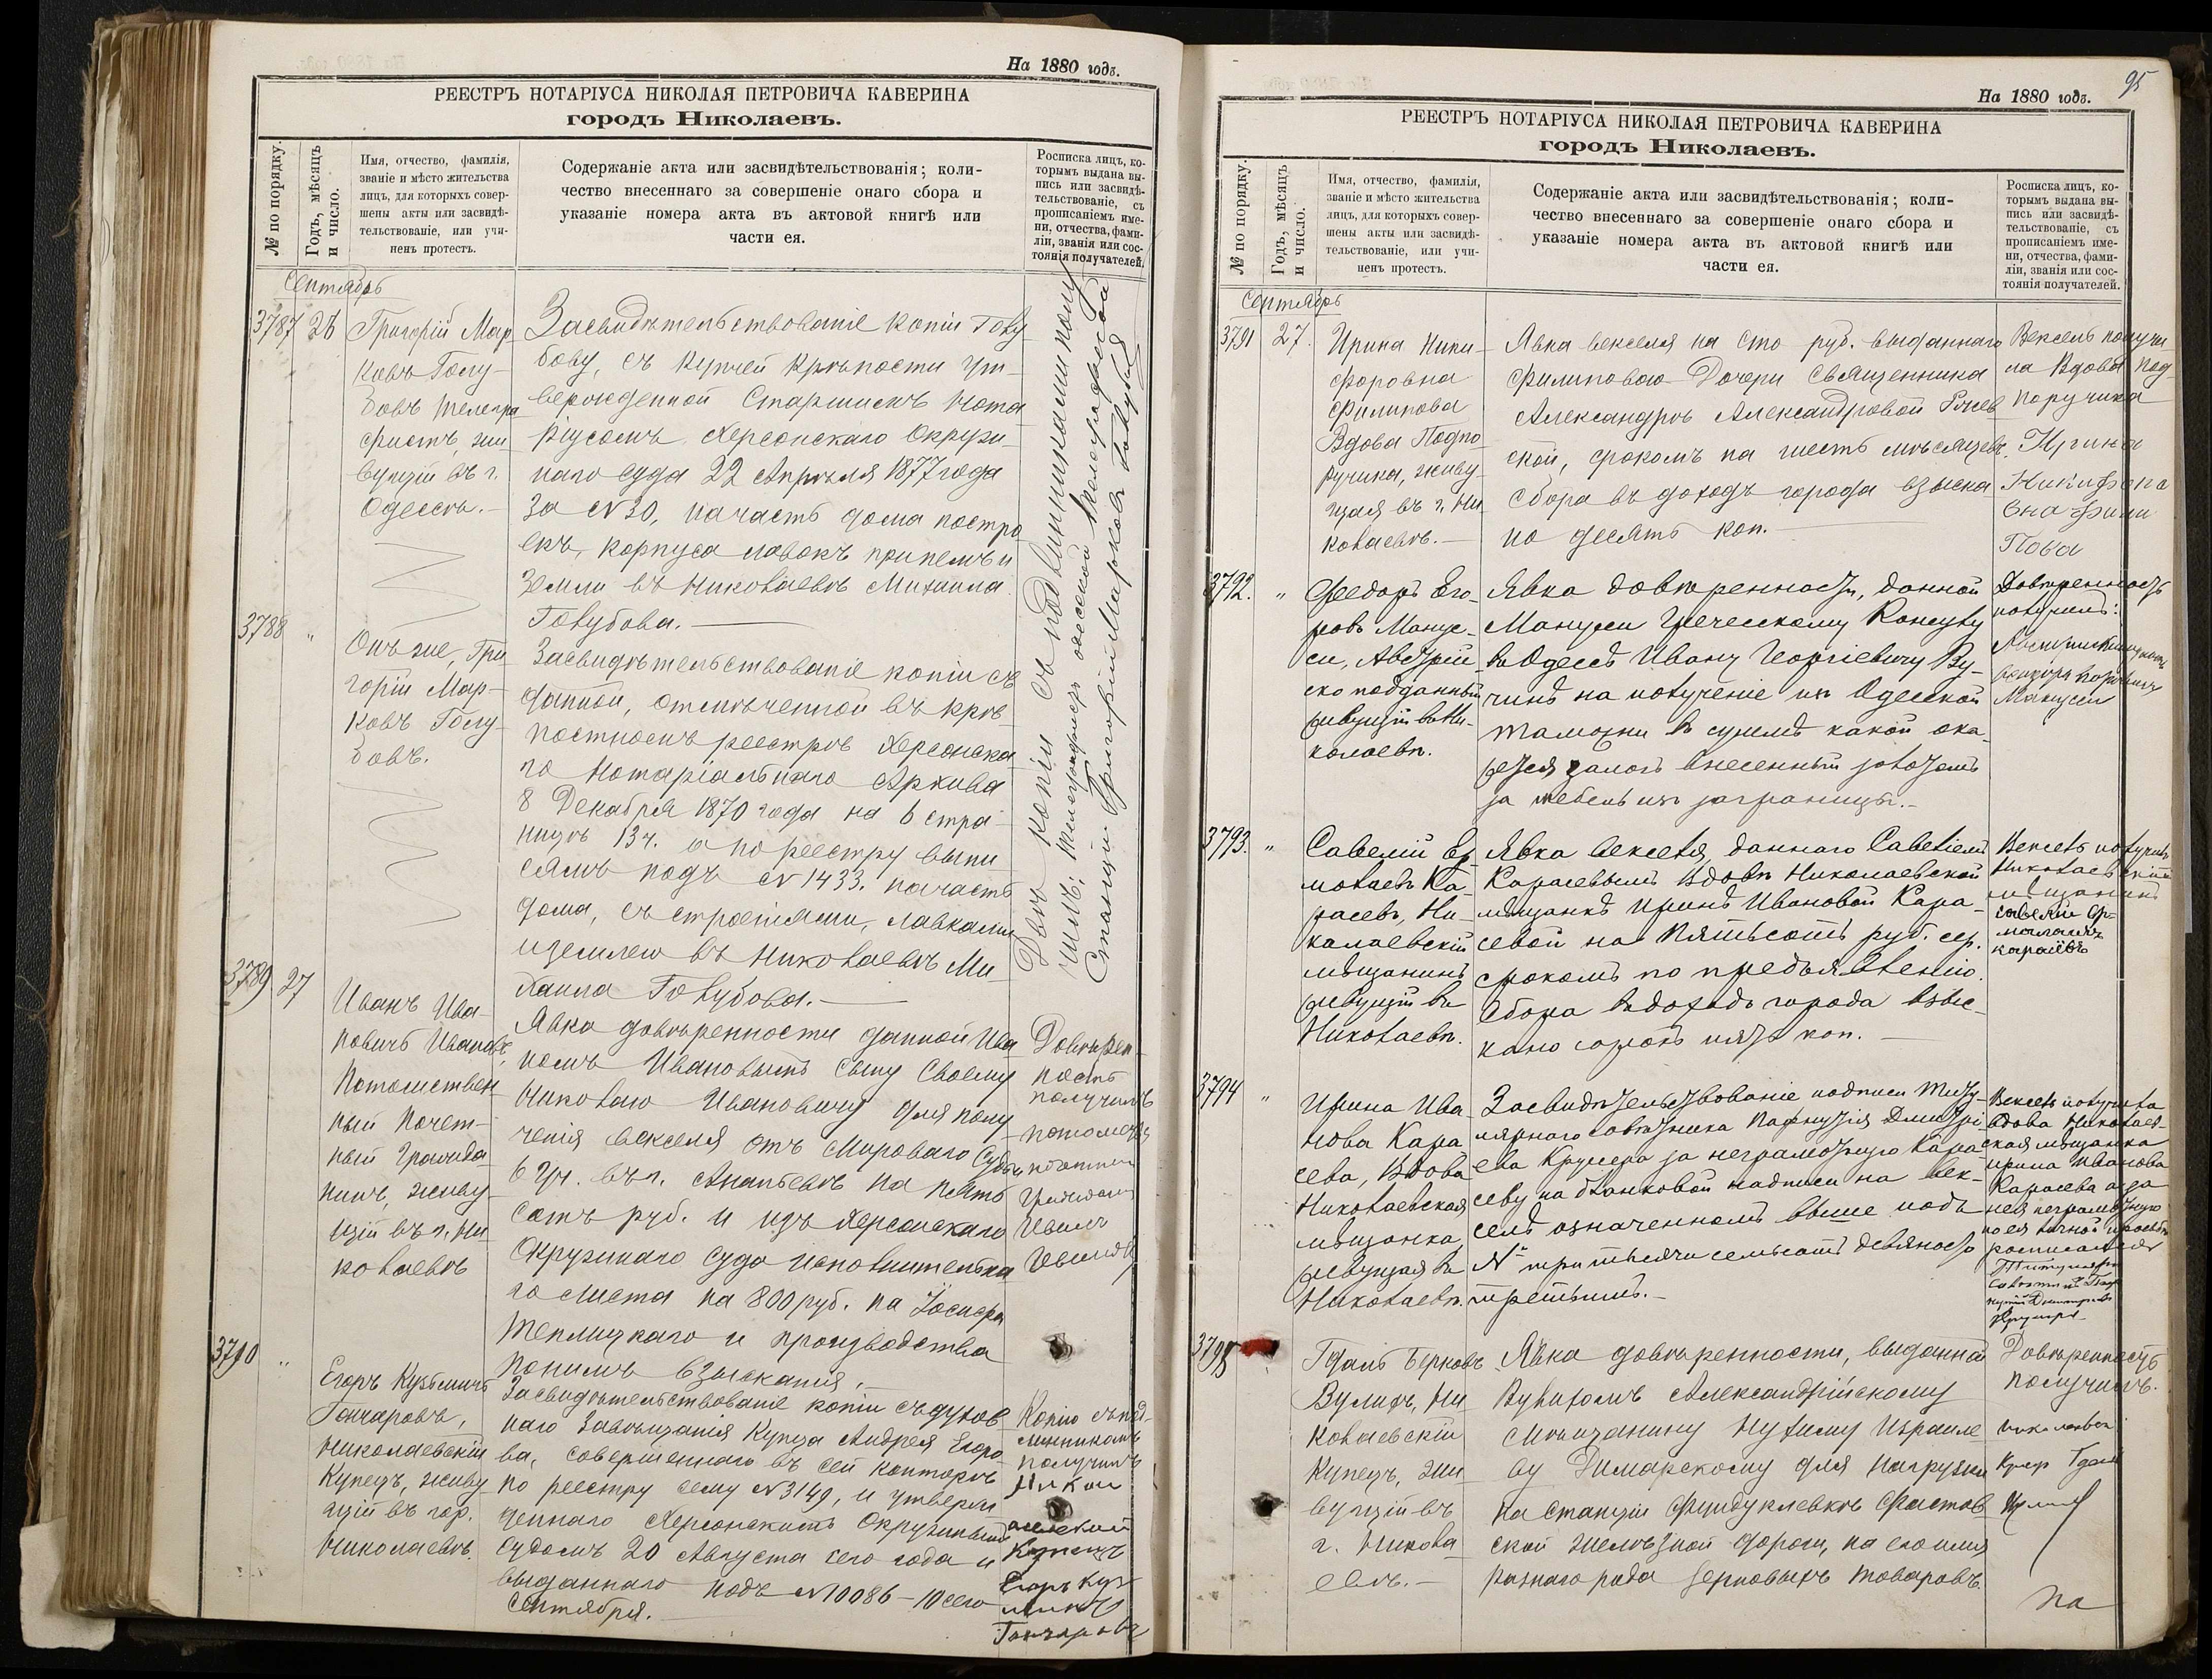 На 1880 годъ.
РЕЕСТРЪ НОТАРІУСА НИКОЛАЯ ПЕТРОВИЧА КАВЕРИНА
городъ Николаевъ.
№ по порядку.
Годъ, мѣсяцъ
и число.
Имя, отчество, фамилія,
званіе и мѣсто жительства
лицъ, для которыхъ совер-
шены акты или засвидѣ-
тельствованіе, или учи-
ненъ протестъ.
Содержаніе акта или засвидѣтельствованія; коли-
чество внесеннаго за совершеніе онаго сбора и
указаніе номера акта въ актовой книгѣ или
части ея.
Росписка лицъ, ко-
торымъ выдана вы-
пись или засвидѣ-
тельствованіе, съ
прописаніемъ име-
ни, отчества, фами-
ліи, званія или сос-
тоянія получателей.
Сентябрь
3787
26
Григорій Мар
ковъ Голу-
бовъ телегра
фистъ, жи
вущій въ г.
Одессѣ.-
Засвидѣтельствованіе копіи Голу
бову, съ купчей крѣпости ут-
вержденной Старшимъ Нота
ріусомъ Херсонскаго Окруж-
наго Суда 22 Апрѣля 1877 года
за № 30, на часть дома постро
екъ, корпуса лавокъ при немъ и
земли въ Николаевѣ Михаила
Голубова.
Двѣ копіи съ подлинниками полу
чилъ: телеграфистъ одесской телеграфной
Станціи Григорій Марковъ Голубовъ
3788
"
Онъ же, Гри
горій Мар-
ковъ Голу-
бовъ.
Засвидѣтельствованіе копіи съ
данной, отмѣченной въ крѣ-
постномъ реестрѣ Херсонска
го Нотаріальнаго Архива
8 Декабря 1870 года на 6 стра
ницѣ 13 ч. а по реестру выпи
сямъ подъ № 1433. на часть
дома, съ строеніями, лавками
и землею въ Николаевѣ Ми-
хаила Голубова.-
3789
27
Иванъ Ива-
новичъ Ивановъ,
Потомствен
ный Почет-
ный Гражда
нинъ, живу-
щій въ г. Ни
колаевѣ
Явка довѣренности данной Ива
номъ Ивановымъ сыну своему
Николаю Ивановичу для полу
ченія векселя отъ Мироваго Судьи
6 уч. въ г. Ананьевѣ на пять
сотъ руб. и изъ Херсонскаго
Окружнаго Суда исполнительна
го листа на 800 руб. на Іосифа
Теплицкаго и производства
по нимъ взысканія.-
Довѣрен-
ность
получилъ
3790
"
Егоръ Кузьмичъ
Гончаровъ,
Николаевскій
Купецъ, живу
щій въ гор.
Николаевѣ.
Засвидѣтельствованіе копіи съ духов
наго завѣщанія Купца Андрея Егоро
ва, совершеннаго въ сей конторѣ
по реестру сему № 3149, и утверж
деннаго Херсонскимъ Окружнымъ
Судомъ 20 Августа сего года и
выданнаго подъ № 10086 - 10 сего
Сентября.
Копію съ под-
линникомъ
получилъ
Никол
аевскій
Купецъ
Егоръ Куз
мичъ
Гончаровъ
95
На 1880 годъ.
РЕЕСТРЪ НОТАРІУСА НИКОЛАЯ ПЕТРОВИЧА КАВЕРИНА
городъ Николаевъ.
№ по порядку.
Годъ, мѣсяцъ
и число.
Имя, отчество, фамилія,
званіе и мѣсто жительства
лицъ, для которыхъ совер-
шены акты или засвидѣ-
тельствованіе, или учи-
ненъ протестъ.
Содержаніе акта или засвидѣтельствованія; коли-
чество внесеннаго за совершеніе онаго сбора и
указаніе номера акта въ актовой книгѣ или
части ея.
Росписка лицъ, ко-
торымъ выдана вы-
пись или засвидѣ-
тельствованіе, съ
прописаніемъ име-
ни, отчества, фами-
ліи, званія или сос-
тоянія получателей.
Сентябрь
3791
27.
Ирина Ники-
форовна
Филипова
Вдова Подпо
ручика, живу
щая въ г. Ни
колаевѣ.-
Явка векселя на сто руб. выданнаго
Филиповою Дочери Священника
Александрѣ Александровой
ской, срокомъ на шесть мѣсяцевъ.
Сбора въ доходъ города взыска
но десять коп.
Вексель получи
ла Вдова Под-
поручика
Ирина
Никифоро
вна Фили
пова
3792.
"
Федоръ Его-
ровъ Манус-
си, Австрій
ско подданный
живущій въ Ни-
колаевѣ.
Явка довѣренности, данной
Мануси Греческому Консулу
въ Одессѣ Ивану Георгіевичу Ву-
чинѣ на полученіе изъ Одесской
таможни въ суммѣ какой ока-
жется залогъ внесенный залогомъ
за мебель изъ заграницы.-
Довѣренность
получилъ:
3793.
"
Савелій Ер
молаевъ Ка-
расевъ, Ни-
колаевскій
мѣщанинъ
живущій въ
Николаевѣ.
Явка векселя, даннаго Савеліемъ
Карасевымъ Вдовѣ Николаевской
мѣщанкѣ Иринѣ Ивановой Кара-
севой на пятьсотъ руб. сер.
срокомъ по предъявленію.
Сбора въ доходъ города взыс-
кано сорокъ пять коп.
Вексель получилъ
Николаевскій
мѣщанинъ
Савелій Ер-
малаевъ
карасевъ
3794
"
Ирина Ива
нова Кара
сева, Вдова
Николаевская
мѣщанка,
живущая въ
Николаевѣ.
Засвидѣтельствованіе подписи Титу-
лярнаго совѣтника Пафнутія Дмитрі-
ева Крумера за неграмотную Кара-
севу на бланковой надписи на век-
селѣ означенномъ выше подъ
№ три тысячи семьсотъ девяносто
третьимъ.-
Вексель получила
вдова Николаев-
ская мѣщанка
Ирина Иванова
Карасева а за
нея неграмотную
по ея личной просьбѣ
росписался
Титулярн
3795
Гдаль Берковъ
Вулихъ, Ни
колаевскій
Купецъ, жи
вущій въ
г. Никола
евѣ.-
Явка довѣренности, выданной
Вулихомъ Александрійскому
Мѣщанину Нухиму Израиле-
ву Димарскому для погрузки
на станціи Фундуклеевкѣ Фастов
ской желѣзной дороги, на его имя
разнаго рода зерновыхъ товаровъ.
Довѣренность
получилъ.
на